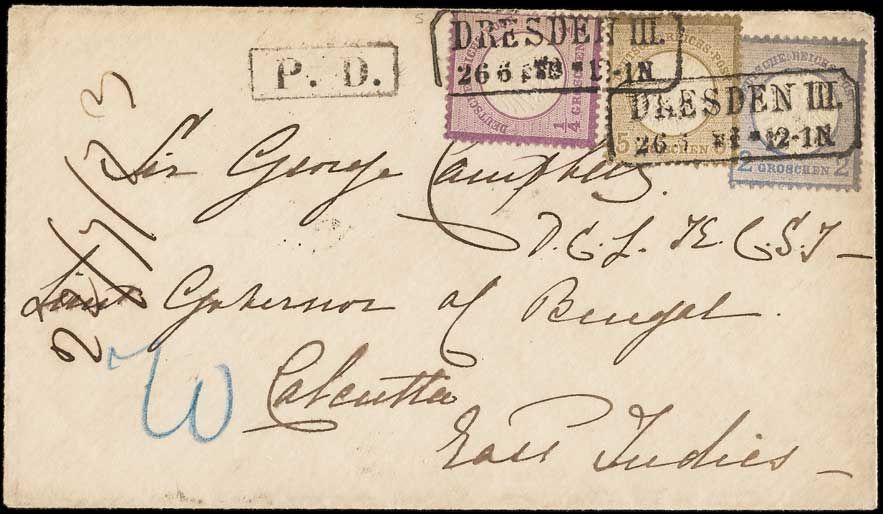 P. D.
DRESDEN III.
26 6 12-1N
DEUTSCHE REICHS-POST
1/4 GROSCHEN
REICHS-POST
5 GROSCHEN
DRESDEN III.
26 12-1N
DEUTSCHE REICHS-POST
2 GROSCHEN 2
Sir George Campbell.
D.C.L. K.C.S.I
Lieut Governor of Bengal.
Calcutta
East Indies